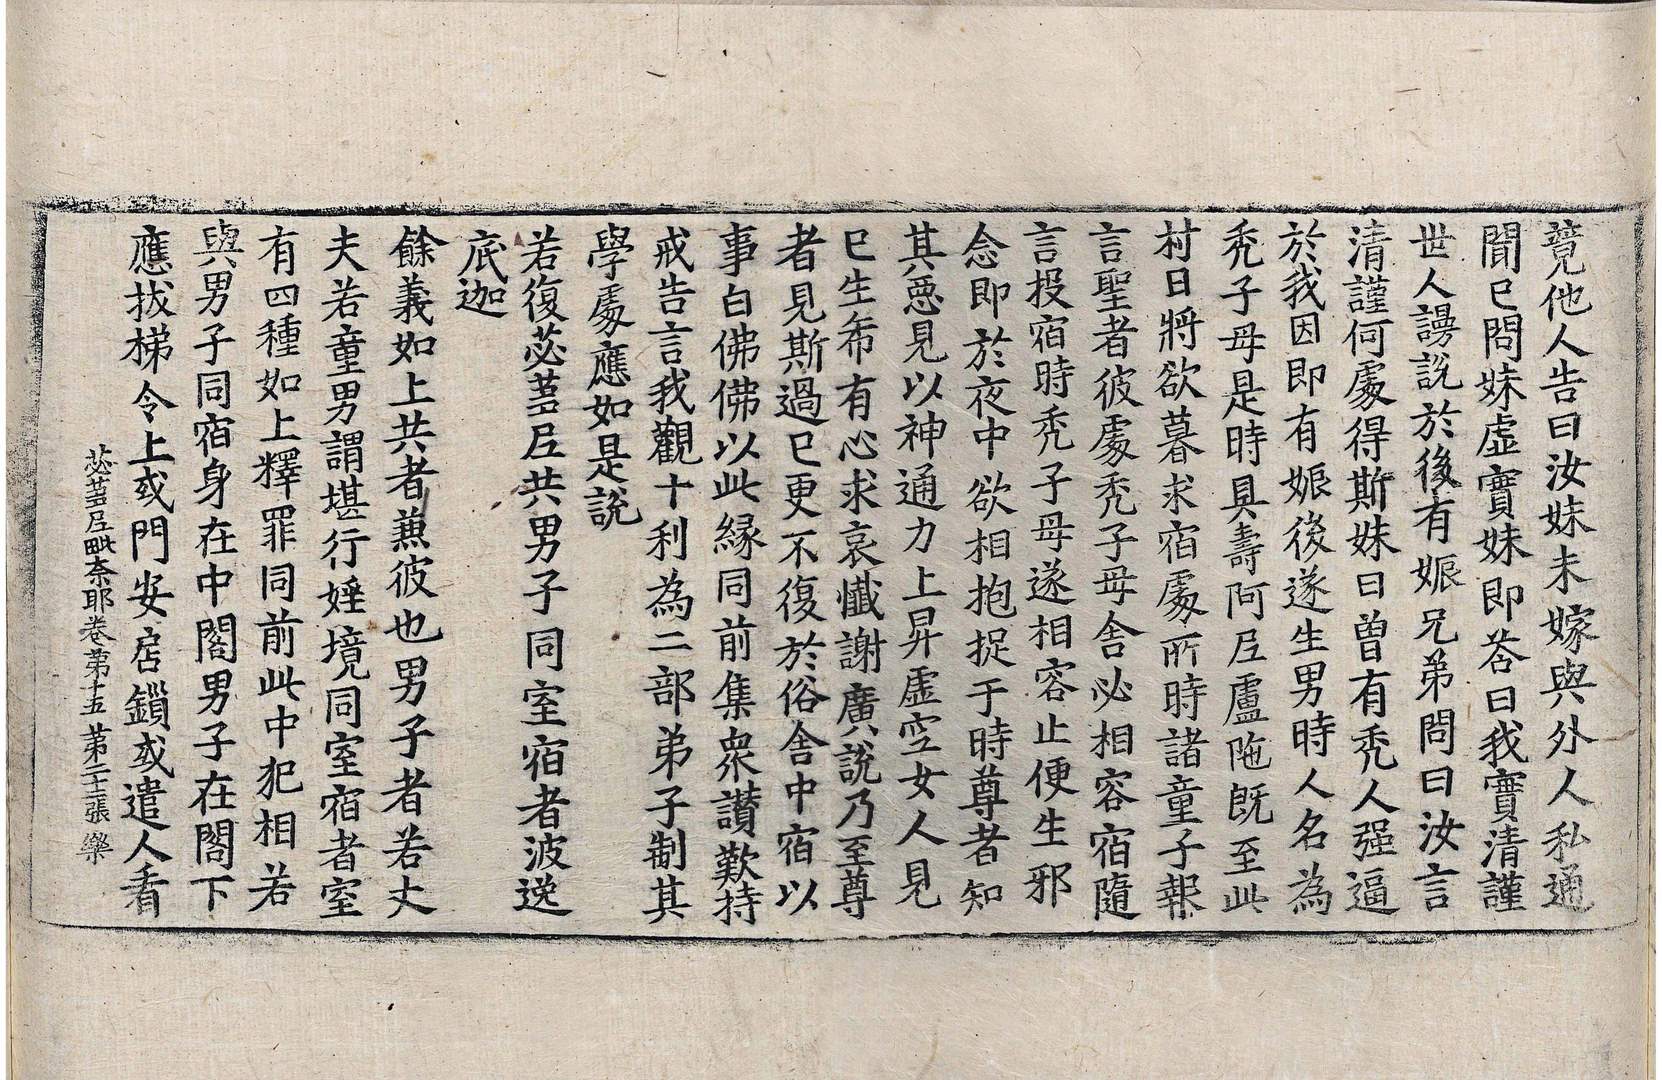 竟他人告曰汝妹未嫁與外人私通
聞已問妹虛實妹即荅曰我實清謹
世人謗說於後有娠兄弟問曰汝言
清謹何處得斯妹曰曾有禿人强逼
於我因即有娠後遂生男時人名為
禿子母是時具壽阿尼盧陁旣至此
村日將欲暮求宿處所時諸童子報
言聖者彼處禿子母舍必相容宿隨
言投宿時禿子母遂相容止便生邪
念即於夜中欲相抱捉于時尊者知
其惡見以神通力上昇虛空女人見
已生希有心求哀懺謝廣說乃至尊
者見斯過已更不復於俗舍中宿以
事白佛佛以此緣同前集衆讃歎持
戒告言我觀十利為二部弟子制其
學處應如是說
若復苾蒭尼共男子同室宿者波逸
底迦
餘義如上共者兼彼也男子者若丈
夫若童男謂堪行婬境同室宿者室
有四種如上釋罪同前此中犯相若
與男子同宿身在中閣男子在閣下
應拔梯令上或門安居鎖或遣人看
苾蒭尼毗奈耶卷第十五 第二十二張 樂